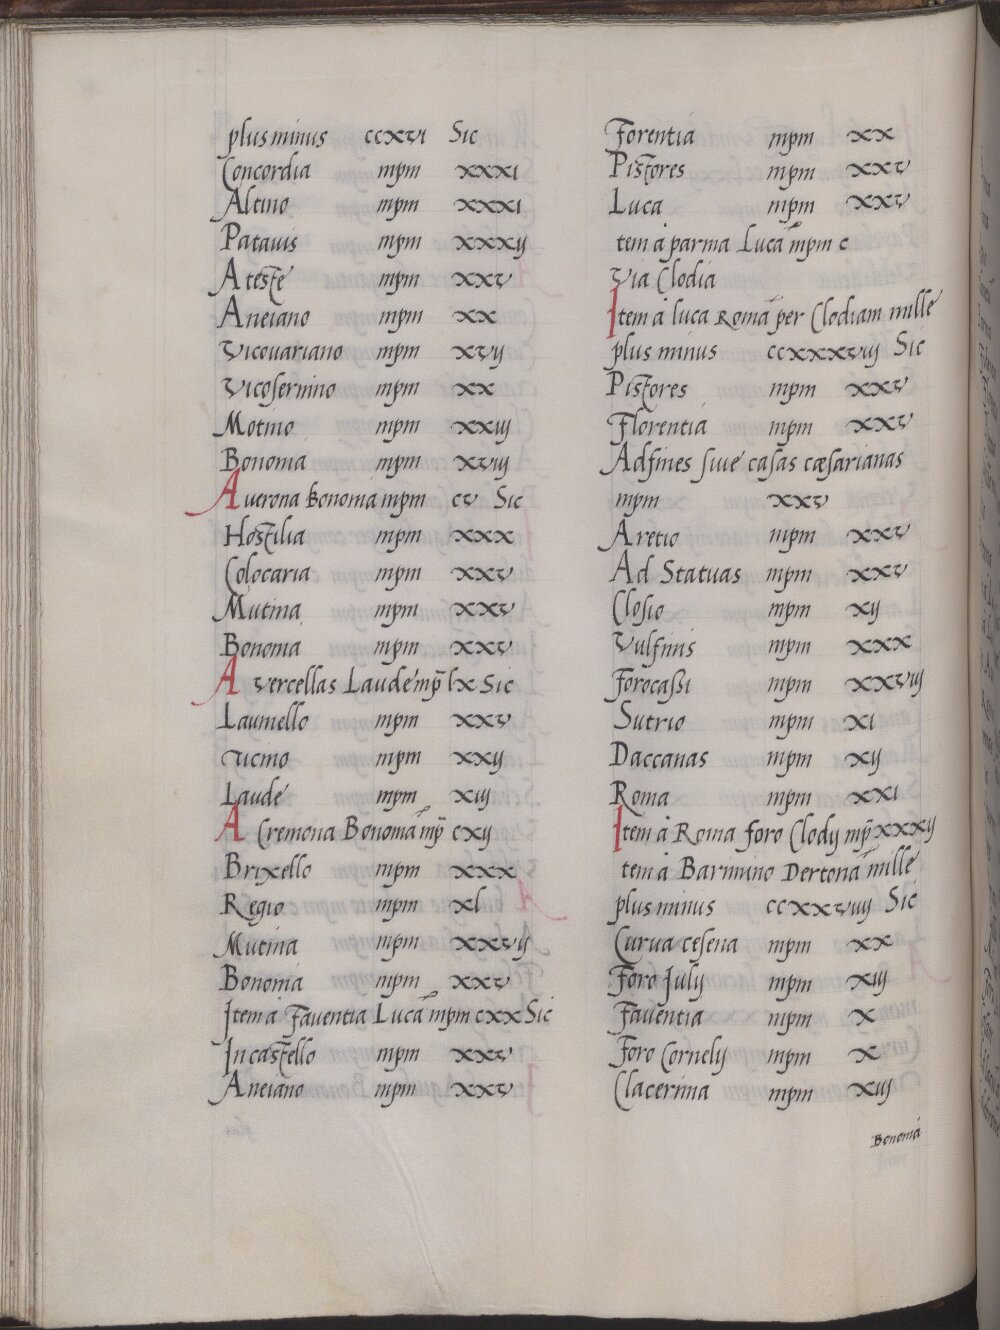 plus minus ccxvi Sic
Concordia mpm xxxi
Altino mpm xxxi
Patavis mpm xxxij
Ateste mpm xxv
Aneiano mpm xx
Vicovariano mpm xvij
Vicosernino mpm xx
Motino mpm xxiij
Bononia mpm xviij
A verona Bononiā mpm cv Sic
Hostilia mpm xxx
Colocaria mpm xxv
Mutina mpm xxv
Bononia mpm xxv
A vercellas Laude mp̄ lx Sic
Laumello mpm xxv
Ticino mpm xxij
Laude mpm xiij
A Cremona Bononiā mp̄ cxij
Brixello mpm xxx
Regio mpm xl
Mutina mpm xxvij
Bononia mpm xxv
Item à Faventia Lucā mpm cxx Sic
In castello mpm xxv
Aneiano mpm xxv
Forentia mpm xx
Pistores mpm xxv
Luca mpm xxv
tem à parma Lucā mpm c
Via Clodia
Item à luca Romā per Clodiam mille
plus minus ccxxxviij Sic
Pistores mpm xxv
Florentia mpm xxv
Adfines sive casas cæsarianas
mpm xxv
Aretio mpm xxv
Ad Statuas mpm xxv
Closio mpm xij
Vulfinis mpm xxx
Forocassi mpm xxviij
Sutrio mpm xi
Daccanas mpm xij
Roma mpm xxi
Item à Roma foro Clodij mp̄ xxxij
tem à Barimino Dertonā mille
plus minus ccxxviiij Sic
Curva cesena mpm xx
Foro Julij mpm xiij
Faventia mpm x
Foro Cornelij mpm x
Claterina mpm xiij
Bononiā